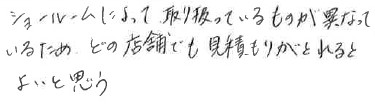 ショールームによって取り扱っているものが異なって
いるため、どの店舗でも見積もりがとれると
よいと思う